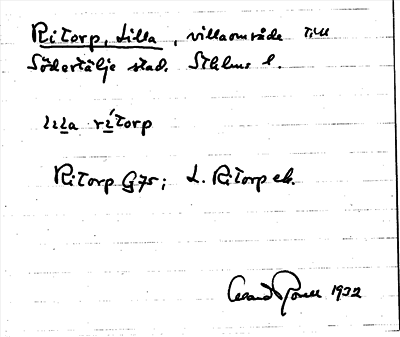 Ritorp, Lilla, villaområde till
Södertälje stad. Sthlms l.
lılla rı́torp
Ritorp G75; L. Ritorp ek.
1932